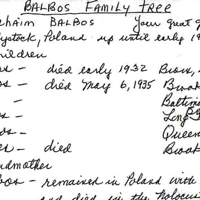 BALBOS FAMILY TREE
haim BALBOS Your great g
ystock, Poland up until early 19
hildren
os - died early 1932
os - died May 6, 1935
os -
os -
os -
s - died
ndmother
os - remained in Poland with
and died in the Holocaus